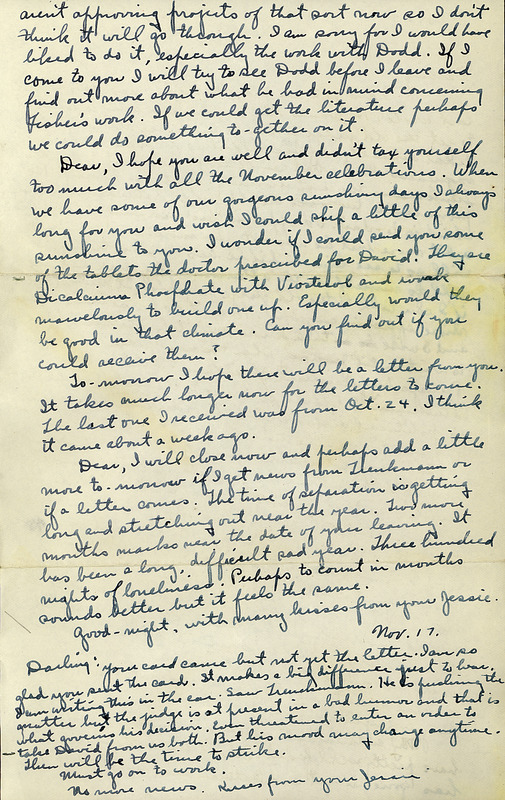 aren't approving projects of that sort now so I don't
think it will go through. I am sorry for I would have
liked to do it, especially the work with Dodd. If I
come to you I will try to see Dodd before I leave and
find out more about what he had in mind concerning
Fisher's work. If we could get the literature perhaps
we could do something to-gether on it.
Dear, I hope you are well and didn't tax yourself
too much with all the November celebrations. When
we have some of our gorgeous sunshiny days I always
long for you and wish I could ship a little of this
sunshine to you. I wonder if I could send you some
of the tablets the doctor prescribed for David. They are
Dicalcium Phosphate with Viosterol and work
marvelously to build one up. Especially would they
be good in that climate. Can you find out if you
could receive them?
To-morrow I hope there will be a letter from you.
It takes much longer now for the letters to come.
The last one I received was from Oct. 24. I think
it came about a week ago.
Dear, I will close now and perhaps add a little
more to-morrow if I get news from or
if a letter comes. The time of separation is getting
long and stretching out near the year. Two more
months marks near the date of your leaving. It
has been a long, difficult sad year. Three hundred
nights of loneliness. Perhaps to count in months
sounds better but it feels the same.
Good-night, with many kisses from your Jessie.
Nov. 17.
Darling: your card came but not yet the letter. I am so
glad you sent the card. It makes a big difference just to hear.
I am writing this in the car. Saw . He is pushing the
matter but the judge is at present in a bad humor and that is
what governs his decision. Even threatened to enter an order to
take David from us both. But his mood may change anytime.
Then will be the time to strike.
Must go on to work.
No more news. Kisses from your Jessie